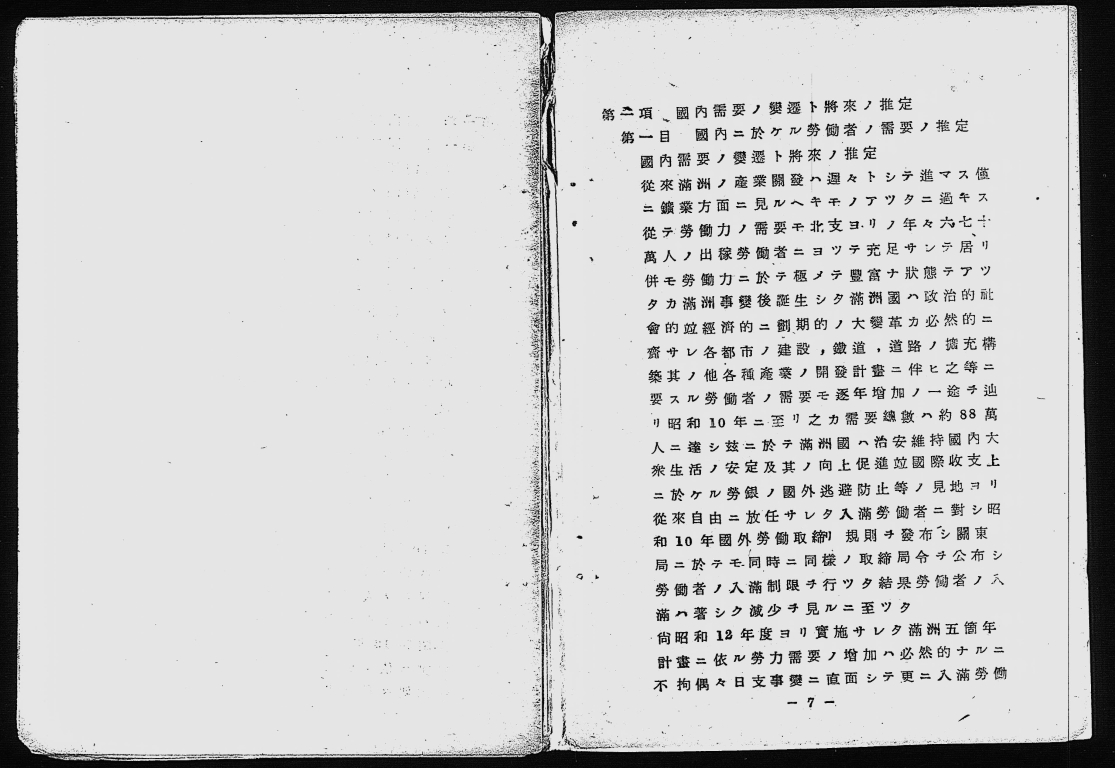 第二項 國內需要ノ變遷ト將來ノ推定
第一目 國內ニ於ケル勞働者ノ需要ノ推定
國內需要ノ變遷ト將來ノ推定
從來滿洲ノ產業開發ハ遲々トシテ進マス僅
ニ鑛業方面ニ見ルヘキモノアツタニ過キス
從テ勞働力ノ需要モ北支ヨリノ年々六七十
萬人ノ出稼勞働者ニヨツテ充足サレテ居リ
併モ勞働力ニ於テ極メテ豐富ナ狀態テアツ
タカ滿洲事變後誕生シタ滿洲國ハ政治的社
會的竝經濟的ニ劃期的ノ大變革カ必然的ニ
齎サレ各都市ノ建設,鐵道,道路ノ擴充構
築其ノ他各種產業ノ開發計畫ニ伴ヒ之等ニ
要スル勞働者ノ需要モ逐年增加ノ一途ヲ辿
リ昭和10年ニ至リ之カ需要總數ハ約88萬
人ニ達シ玆ニ於テ滿洲國ハ治安維持國內大
衆生活ノ安定及其ノ向上促進竝國際收支上
ニ於ケル勞銀ノ國外逃避防止等ノ見地ヨリ
從來自由ニ放任サレタ入滿勞働者ニ對シ昭
和10年國外勞働取締規則ヲ發布シ關東
局ニ於テモ同時ニ同樣ノ取締局令ヲ公布シ
勞働者ノ入滿制限ヲ行ツタ結果勞働者ノ入
滿ハ著シク減少ヲ見ルニ至ツタ
尙昭和12年度ヨリ實施サレタ滿洲五箇年
計畫ニ依ル勞力需要ノ增加ハ必然的ナルニ
不拘偶々日支事變ニ直面シテ更ニ入滿勞働
– 7 –